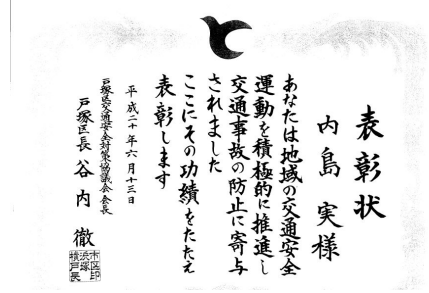 表彰状
内島 実 様
あなたは地域の交通安全
運動を積極的に推進し
交通事故の防止に寄与
されました
ここにその功績をたたえ
表彰します
平成二十年六月十三日
戸塚区交通安全対策協議会会長
戸塚区長 谷内 徹